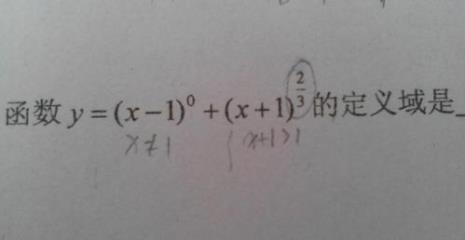 函数 y=(x-1)⁰+(x+1)^{2/3} 的定义域是_
x≠1 { x+1>1